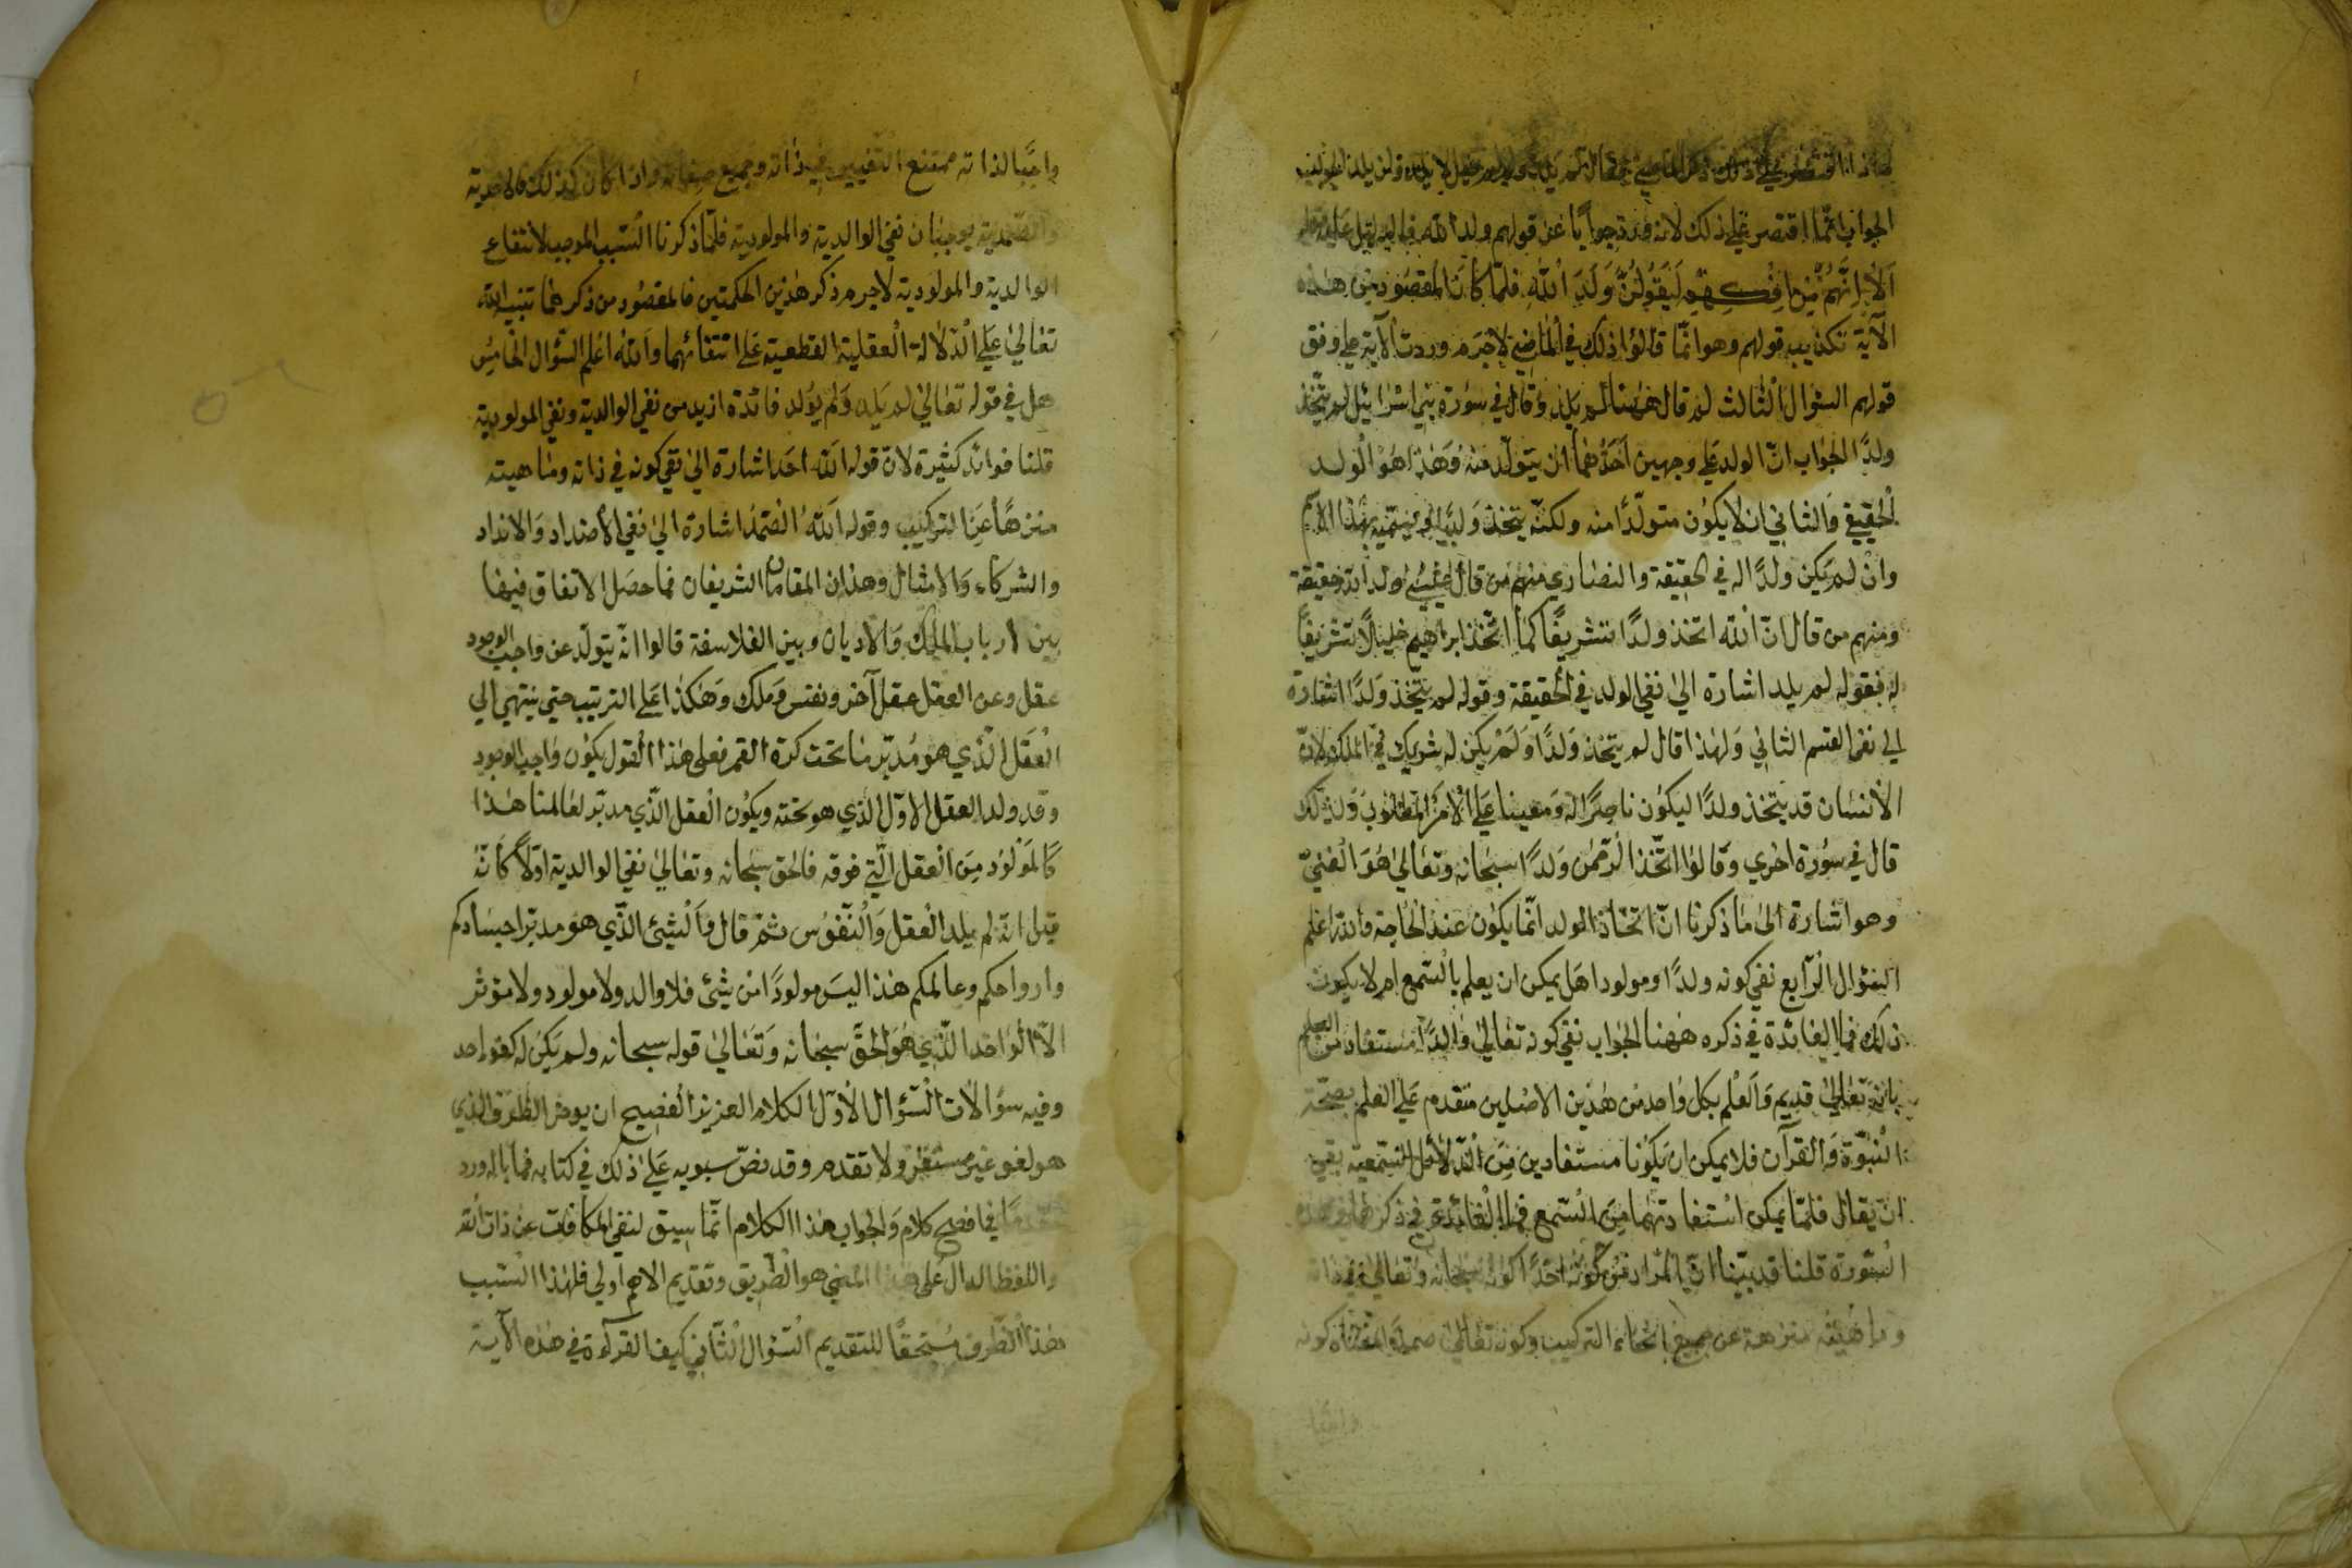 لماذا اقتصر على ذكر الماضي فقال لم يلد ولم يقل لن يلد الجواب
الجواب انما اقتصر على ذلك لانه ورد جوابا عن قولهم ولد الله والدليل عليه قوله
اَلَا اِنَّهُمْ مِنْ اِفْكِهِمْ لَيَقُوْلُوْنَ وَلَدَ اللّٰهُ فلمّا كان المقصود من هذه
الآية تكذيب قولهم وهو انّما قالوا ذلك في الماضي لاجرم وردت الآية على وفق
قولهم السؤال الثالث لم قال ههنا لم يلد وقال في سورة بني اسرائيل لم يتّخذ
ولدًا الجواب انّ الولد على وجهين احدهما ان يتولّد منه وهذا هو الولد
الحقيقي والثاني ان لا يكون متولّدًا منه ولكنّه يتخذه ولدًا او يسمّيه بهذا الاسم
وان لم يكن ولدًا له في الحقيقة والنصاري منهم من قال عيسى ولد الله حقيقة
ومنهم من قال انّ الله اتخذ ولدًا تشريفًا كما اتّخذ ابراهيم خليلًا تشريفًا
له فقوله لم يلد اشارة الى نفي الولد في الحقيقة وقوله لم يتّخذ ولدًا اشارة
الى نفي القسم الثاني ولهذا قال لم يتخذ ولدًا ولم يكن له شريك في الملك لانّ
الانسان قد يتخذ ولدًا ليكون ناصرًا له ومعينا على الامر المطلوب ولذلك
قال في سورة اخري وقالوا اتّخذ الرّحمن ولدًا سبحانه وتعالى هو الغنيّ
وهو اشارة الى ما ذكرنا انّ اتخاذ الولد انّما يكون عند الحاجة والله اعلم
السؤال الرّابع نفي كونه ولدًا ومولودا هل يمكن ان يعلم بالسّمع ام لا يكون
ذلك فما الفائدة في ذكره ههنا الجواب نفي كونه تعالى والدًا مستفاد من العلم
بانّه تعالى قديم والعلم بكل واحد من هذين الاصلين متقدم على العلم بصحّة
النبوّة والقرآن فلا يمكن ان يكونا مستفادين من الدّلائل السّمعية بقي
ان يقال فلمّا يمكن استفادتهما من السّمع فما الفائدة في ذكرهما في هذه
السّورة قلنا قد بيّنا انّ المراد من كونه احدًا كونه سبحانه وتعالى في ذاته
وماهيته منزهة عن جميع انحاء التركيب وكونه تعالى صمدا معناه كونه
واجبًا
واجبًا لذاته ممتنع التغيير في ذاته وجميع صفاته واذا كان كذلك فالاحدية
والصّمدية يوجبان نفي الوالدية والمولودية فلمّا ذكرنا السّبب الموجب لانتفاع
الوالدية والمولودية لاجرم ذكر هذين الحكمتين فالمقصود من ذكرهما تنبيه الله
تعالى على الدّلالة العقلية القطعية على انتفائهما والله اعلم السّؤال الخامس
هل في قوله تعالى لم يلد ولم يولد فائدة ازيد من نفي الوالدية ونفي المولودية
قلنا فوائد كثيرة لانّ قوله الله احد اشارة الى نفي كونه في ذاته وماهيته
منزهًا عن التركيب وقوله الله الصّمد اشارة الى نفي الاضداد والانداد
والشركاء والامثال وهذان المقامان الشريفان مما حصل الاتفاق فيهما
بين ارباب الملك والاديان وبين الفلاسفة قالوا انّه يتولّد عن واجب الوجود
عقل وعن العقل عقل آخر ونفس وملك وهكذا على الترتيب حتي ينتهي الي
العقل الّذي هو مدبّر ما تحت كرة القمر فعلى هذا القول يكون واجب الوجود
وقد ولد العقل الاوّل الذي هو تحته ويكون العقل الّذي مدبّر لعالمنا هذا
كالمولود من العقل الّتي فوقه فالحق سبحانه وتعالى نفي الوالدية اوّلًا كانّه
قيل انّه لم يلد العقل والنّفوس ثمّ قال والشيئ الّذي هو مدبّر اجسادكم
وارواحكم وعالمكم هذا ليس مولودًا من شيئ فلا والد ولا مولود ولا مؤثر
الّا الواحد الّذي هو الحقّ سبحانه وتعالى قوله سبحانه ولم يكن له كفوا احد
وفيه سؤالات السّؤال الاوّل الكلام العزيز الفصيح ان يوخر الظرف الذي
هو لغو غير مستقرّ ولا تقدم وقد نصّ سبويه على ذلك في كتابه فما باله ورد
مقدّمًا في افصح كلام والجواب هذا الكلام انّما سيق لنفي المكافات عن ذات الله
واللفظ الدال على هذا المعني هو الطريق وتقديم الاهم اولي فلهذا السّبب
هذا الظّرف مستحقًّا للتقديم السّؤال الثّاني كيف القرآءة في هذه الآية